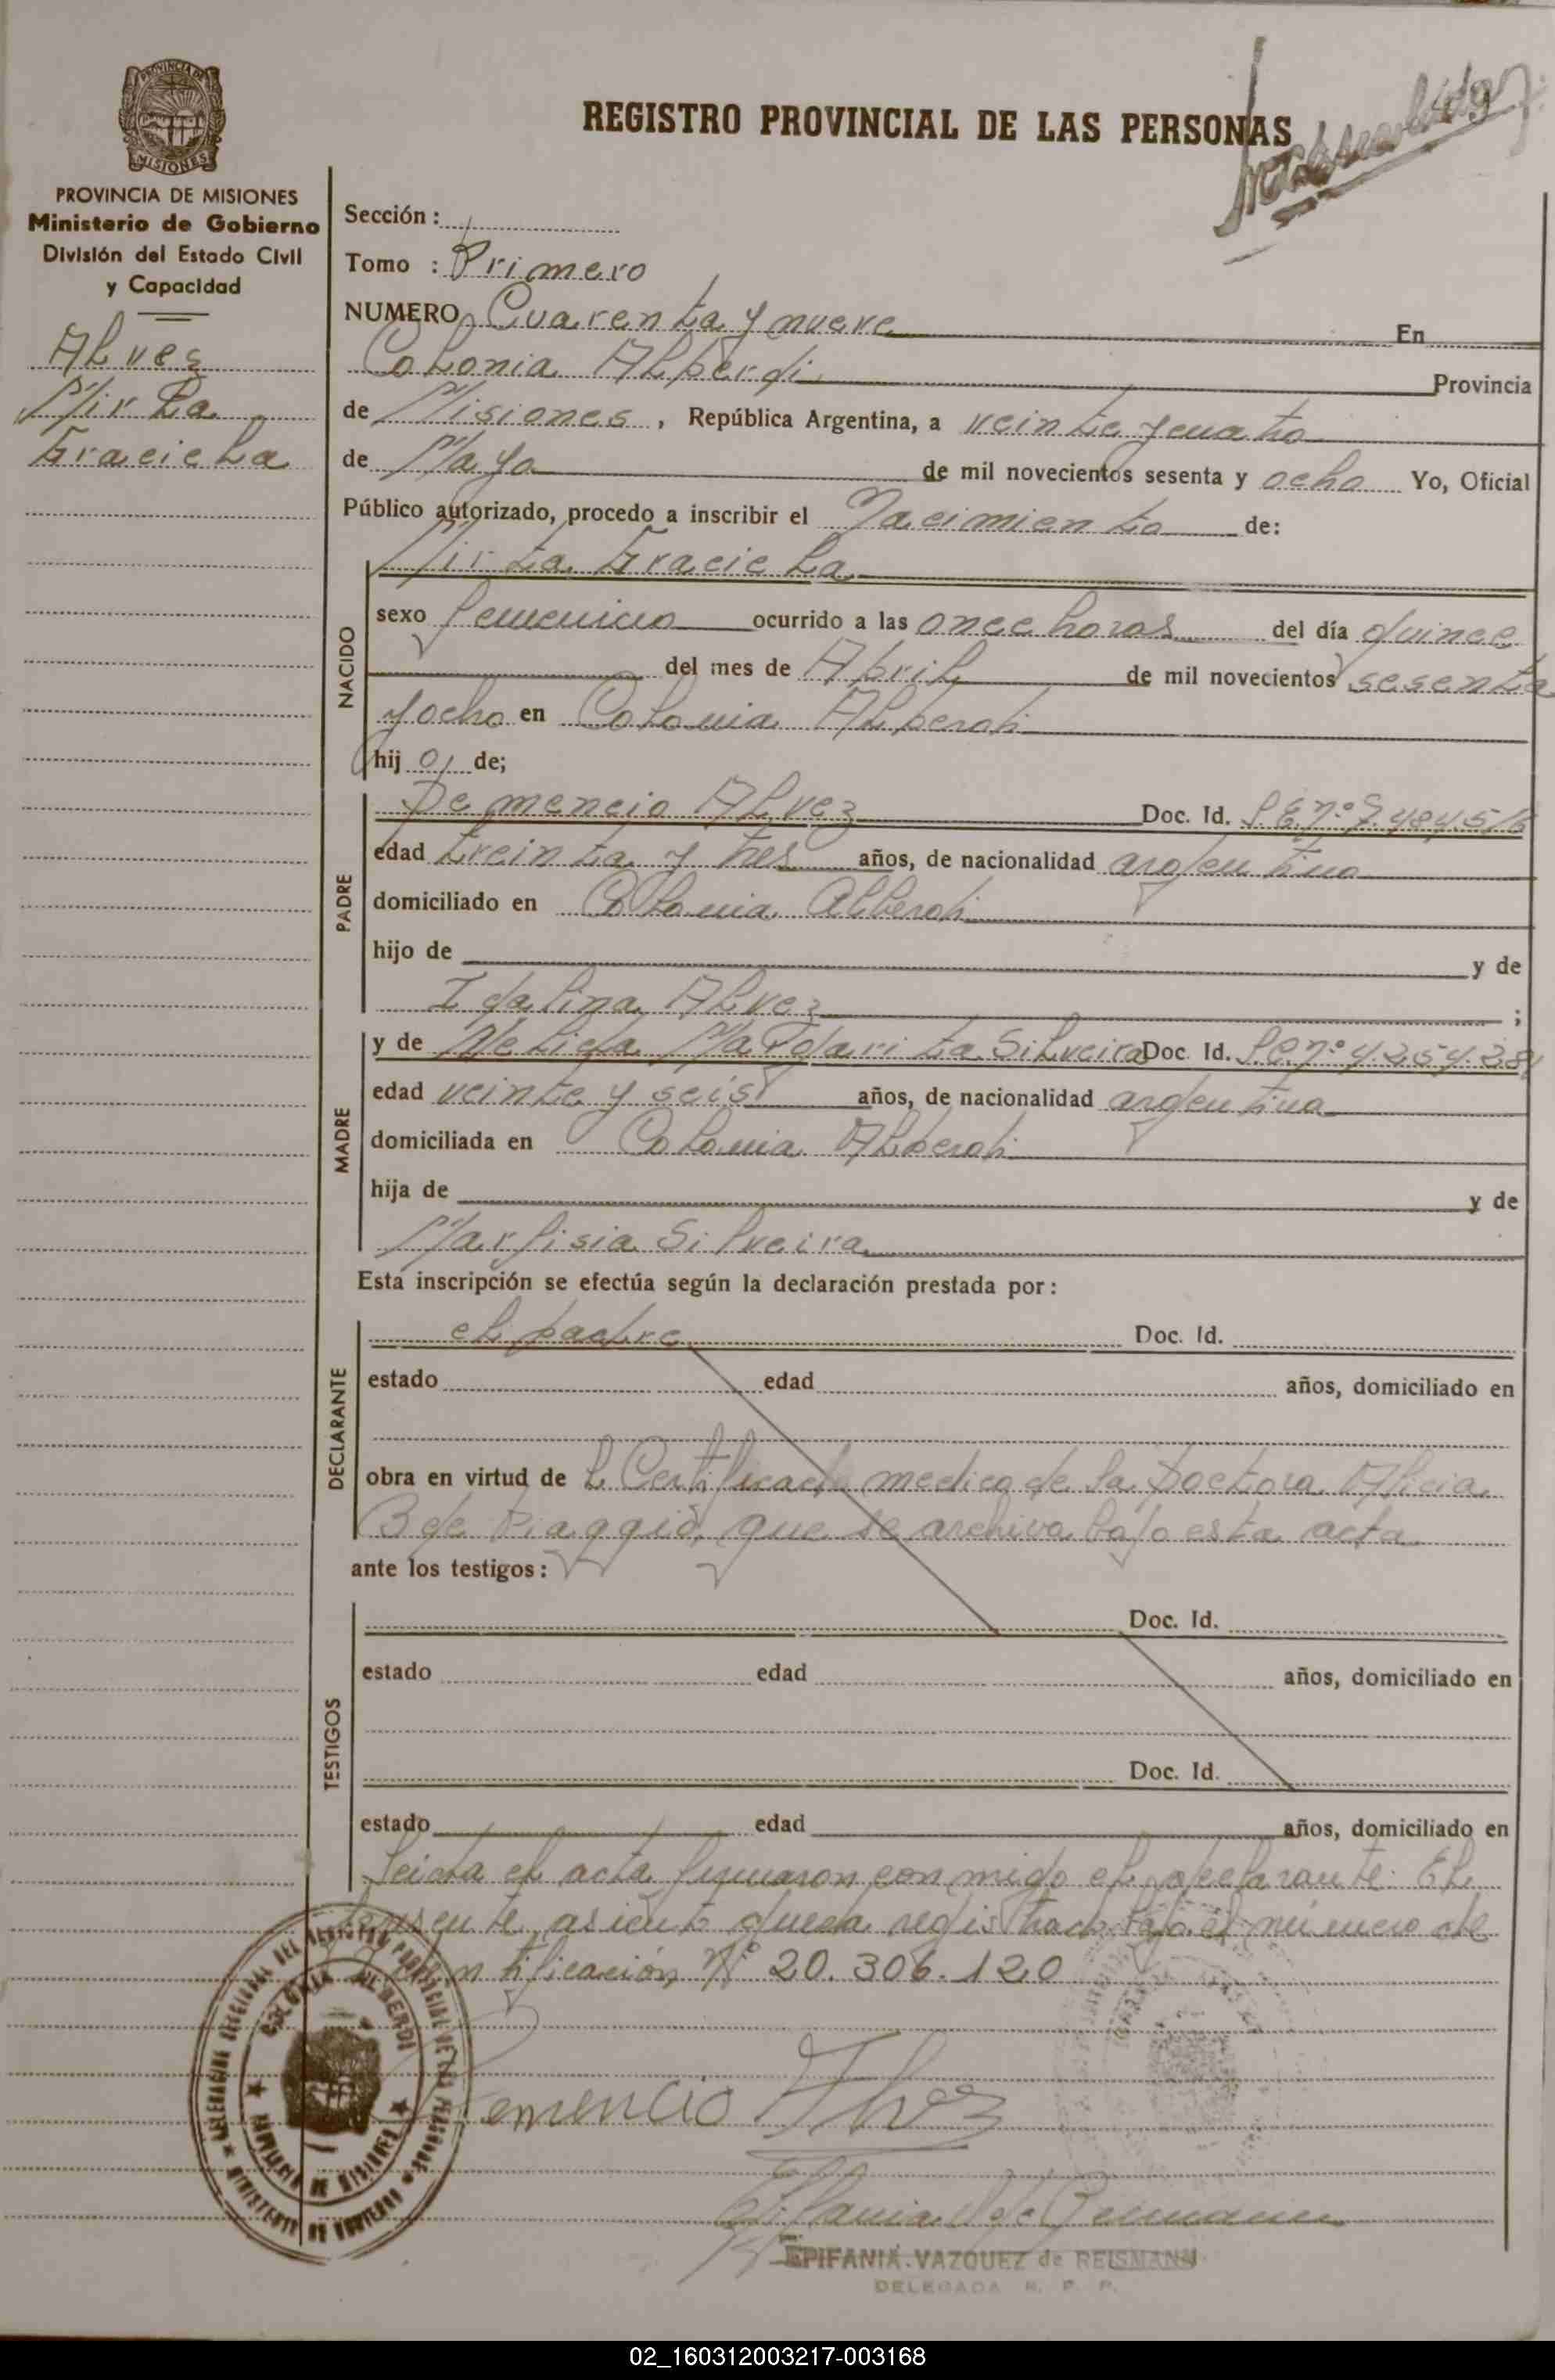 PROVINCIA DE
MISIONES
PROVINCIA DE MISIONES
Ministerio de Gobierno
División del Estado Civil
y Capacidad
Alvez
Mirta
Graciela
REGISTRO PROVINCIAL DE LAS PERSONAS
Sección :
Tomo : Primero
NUMERO Cuarenta y nueve En
Colonia Alberdi Provincia
de Misiones , República Argentina, a veinte y cuatro
de Mayo de mil novecientos sesenta y ocho Yo, Oficial
Público autorizado, procedo a inscribir el Nacimiento de:
NACIDO
Mirta Graciela
sexo femenino ocurrido a las once horas del día quince
del mes de Abril de mil novecientos sesenta
y ocho en Colonia Alberdi
hij a de;
PADRE
Demencio Alvez Doc. Id.
edad treinta y tres años, de nacionalidad argentino
domiciliado en Colonia Alberdi
hijo de y de
Idalina Alvez ;
MADRE
y de Nelida Margarita Silveira Doc. Id.
edad veinte y seis años, de nacionalidad argentina
domiciliada en Colonia Alberdi
hija de y de
Marfisia Silveira
Esta inscripción se efectúa según la declaración prestada por :
DECLARANTE
el padre Doc. Id.
estado edad años, domiciliado en
obra en virtud de l Certificado medico de la Doctora Alicia
B de Piaggio, que se archiva bajo esta acta
ante los testigos :
TESTIGOS
Doc. Id.
estado edad años, domiciliado en
Doc. Id.
estado edad años, domiciliado en
Leida el acta firmaron conmigo el declarante. El
presente asiento queda registrado bajo el numero de
identificación Nº 20.306.120
COLONIA ALBERDI
PROVINCIA DE MISIONES
MINISTERIO DE GOBIERNO
Demencio Alvez
EPIFANIA VAZQUEZ de REISMANN
DELEGADA R. P. P.
02_160312003217-003168